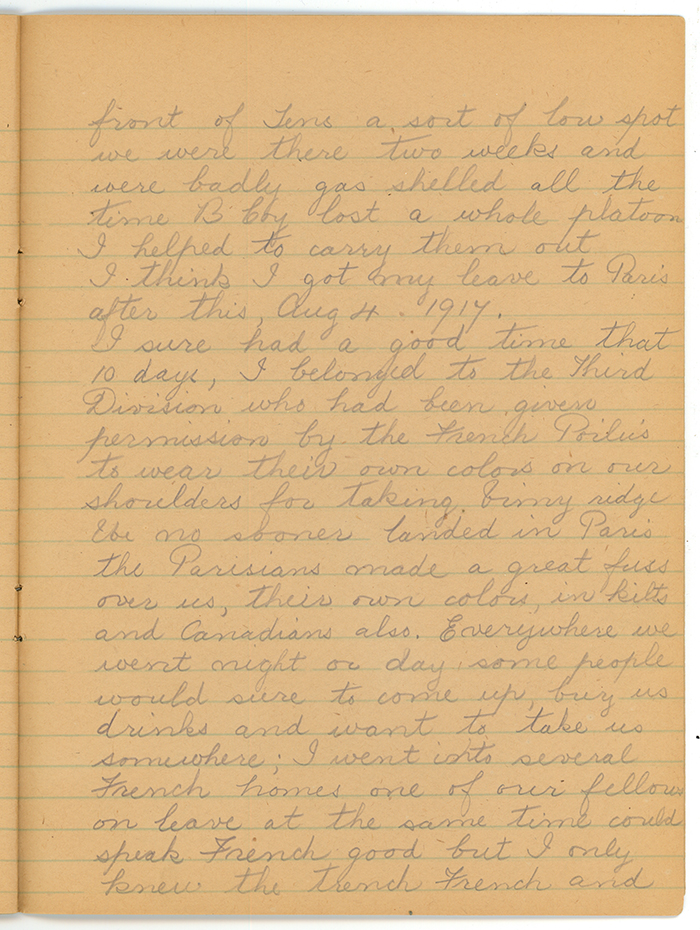 front of Lens a sort of low spot
we were there two weeks and
were badly gas shelled all the
time B Coy lost a whole platoon
I helped to carry them out
I think I got my leave to Paris
after this, Aug 4. 1917.
I sure had a good time that
10 days, I belonged to the Third
Division who had been given
permission by the French Poilu's
to wear their own colors on our
shoulders for taking Vimy ridge
We no sooner landed in Paris
the Parisians made a great fuss
over us, their own colors, in kilts
and Canadians also. Everywhere we
went night or day some people
would sure to come up, buy us
drinks and want to take us
somewhere; I went into several
French homes one of our fellows
on leave at the same time could
speak French good but I only
knew the trench French and